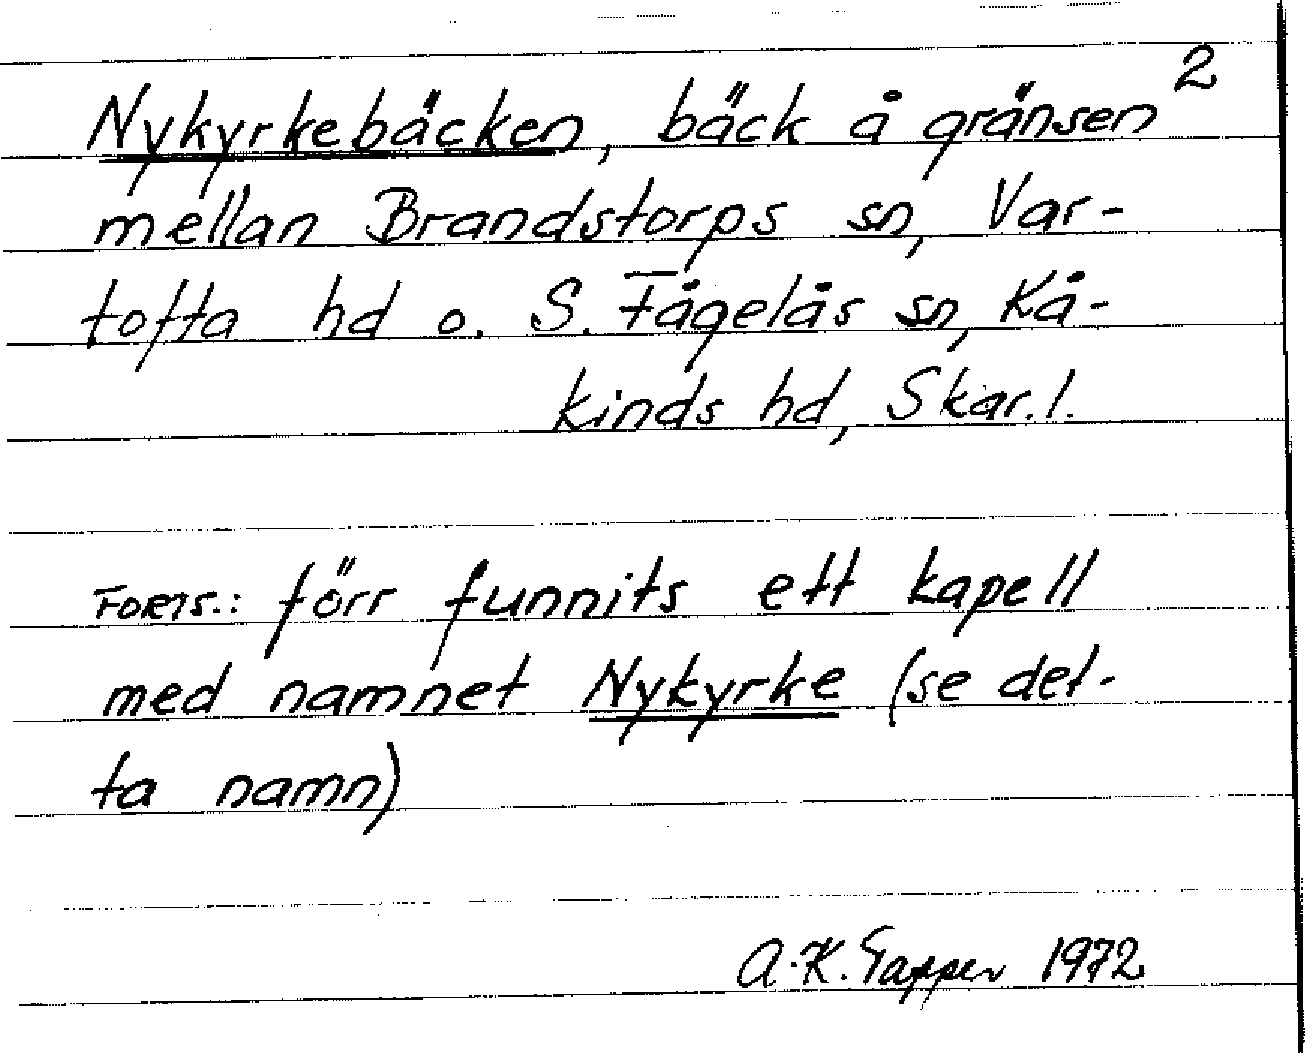 2
Nykyrkebäcken, bäck å gränsen
mellan Brandstorps sn, Var-
tofta hd o. S. Fågelås sn, Kå-
kinds hd, Skar.l.
FORTS.: förr funnits ett kapell
med namnet Nykyrke (se det-
ta namn)
A.K. Tapper 1972